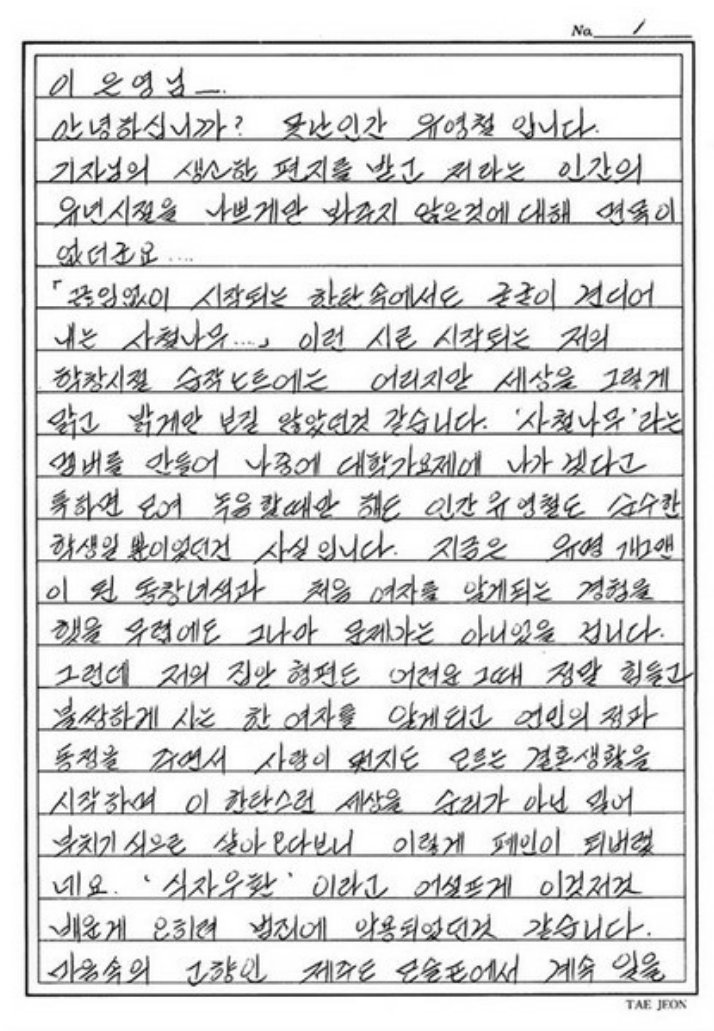 No. 1
이 은영 님 —.
안녕하십니까? 못난인간 유영철 입니다.
기자님의 생소한 편지를 받고 저라는 인간의
유년시절을 나쁘게만 봐주지 않은것에 대해 면목이
없더군요....
「끊임없이 시작되는 한탄속에서도 굳굳이 견디어
내는 사철나무...」 이런 시로 시작되는 저의
학창시절 습작노트에는 어리지만 세상을 그렇게
맑고 밝게만 보질 않았던것 같습니다. '사철나무'라는
멤버를 만들어 나중에 대학가요제에 나가 겠다고
툭하면 모여 녹음할때만 해도 인간 유영철도 순수한
학생일 뿐이었던건 사실 입니다. 지금은 유명 개그맨
이 된 동창녀석과 처음 여자를 알게되는 경험을
했을 무렵에도 그나마 문제아는 아니었을 겁니다.
그런데 저의 집안 형편도 어려운 그때 정말 힘들고
불쌍하게 사는 한 여자를 알게되고 연민의 정과
동정을 주면서 사랑이 뭔지도 모르는 결혼생활을
시작하며 이 한탄스런 세상을 순리가 아닌 밀어
부치기 식으로 살아 오다보니 이렇게 폐인이 되버렸
네요. '식자우환' 이라고 어설프게 이것저것
배운게 오히려 범죄에 악용되었던것 같습니다.
마음속의 고향인 제주도 모슬포에서 계속 일을
TAE JEON